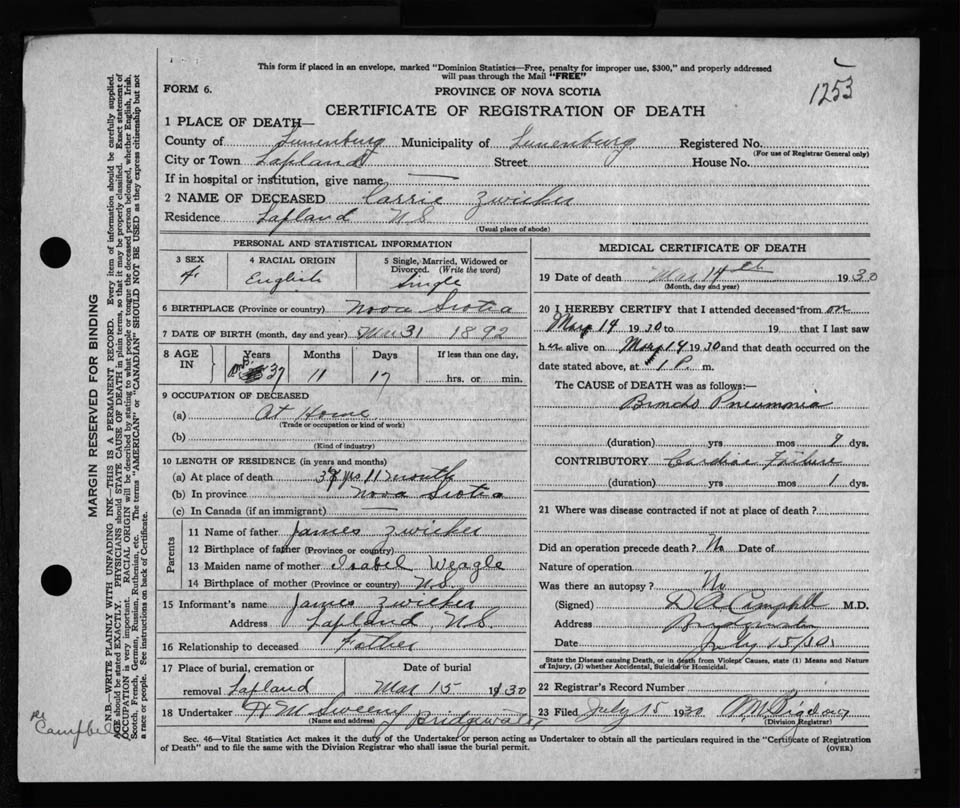 This form if placed in an envelope, marked "Dominion Statistics—Free, penalty for improper use, $300," and properly addressed
will pass through the Mail "FREE"
1253
FORM 6.
PROVINCE OF NOVA SCOTIA
CERTIFICATE OF REGISTRATION OF DEATH
1 PLACE OF DEATH—
County of Lunenburg Municipality of Lunenburg Registered No.
(For use of Registrar General only)
City or Town Lapland Street House No.
If in hospital or institution, give name —
2 NAME OF DECEASED Carrie Zwicker
Residence Lapland N S
(Usual place of abode)
PERSONAL AND STATISTICAL INFORMATION
3 SEX 4 RACIAL ORIGIN 5 Single, Married, Widowed or
Divorced. (Write the word)
English Single
6 BIRTHPLACE (Province or country) Nova Scotia
7 DATE OF BIRTH (month, day and year) 31 1892
8 AGE IN Years Months Days If less than one day,
37 11 17 hrs. or min.
9 OCCUPATION OF DECEASED
(a) At Home
(Trade or occupation or kind of work)
(b)
(Kind of industry)
10 LENGTH OF RESIDENCE (in years and months)
(a) At place of death 37 yrs 11 month
(b) In province Nova Scotia
(c) In Canada (if an immigrant) —
Parents
11 Name of father James Zwicker
12 Birthplace of father (Province or country)
13 Maiden name of mother Isabel Weagle
14 Birthplace of mother (Province or country) N.S.
15 Informant's name James Zwicker
Address Lapland, N.S.
16 Relationship to deceased Father
17 Place of burial, cremation or Date of burial
removal Lapland Mar 15 1930
18 Undertaker H M Sweeny Bridgewater
(Name and address)
MEDICAL CERTIFICATE OF DEATH
19 Date of death Mar 14th 1930
(Month, day and year)
20 I HEREBY CERTIFY that I attended deceased from on
Mar 14 1930 to 19 that I last saw
her alive on Mar 14 1930 and that death occurred on the
date stated above, at 1 P. m.
The CAUSE of DEATH was as follows:—
Broncho Pneumonia
(duration) yrs mos 9 dys.
CONTRIBUTORY Cardiac Failure
(duration) yrs mos 1 dys.
21 Where was disease contracted if not at place of death?
Did an operation precede death? No Date of
Nature of operation
Was there an autopsy? No
(Signed) D A Campbell M.D.
Address Bridgewater
Date July 15/30
State the Disease causing Death, or in death from Violent Causes, state (1) Means and Nature
of Injury, (2) whether Accidental, Suicidal or Homicidal.
22 Registrar's Record Number
23 Filed July 15 1930
(Division Registrar)
Sec. 46—Vital Statistics Act makes it the duty of the Undertaker or person acting as Undertaker to obtain all the particulars required in the "Certificate of Registration
of Death" and to file the same with the Division Registrar who shall issue the burial permit.
(OVER)
MARGIN RESERVED FOR BINDING
N.B.—WRITE PLAINLY WITH UNFADING INK—THIS IS A PERMANENT RECORD. Every item of information should be carefully supplied.
AGE should be stated EXACTLY. PHYSICIANS should STATE CAUSE OF DEATH in plain terms, so that it may be properly classified. Exact statement of
OCCUPATION is very important. RACIAL ORIGIN will be described by stating to what people or tongue the deceased person belonged, whether English, Irish,
Scotch, French, German, Russian, Ruthenian, etc. The terms "AMERICAN" or "CANADIAN" SHOULD NOT BE USED as they express citizenship but not
a race or people. See instructions on back of Certificate.
Campbell